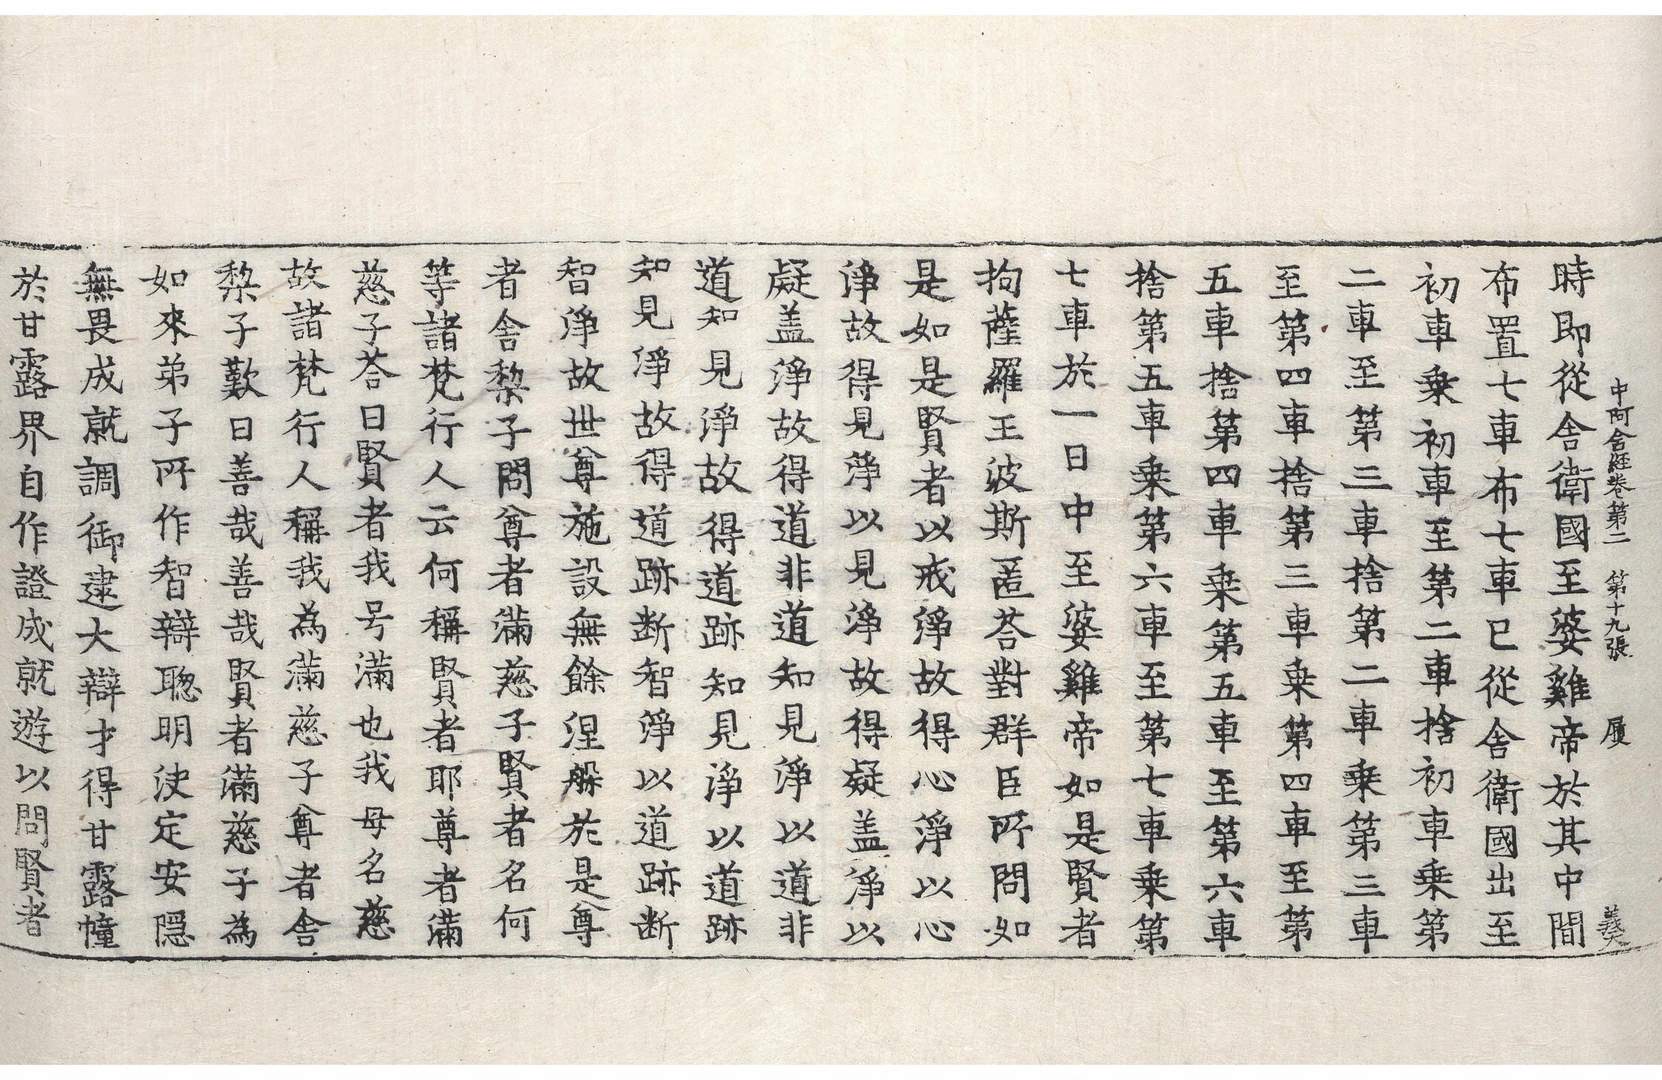 中阿含經卷第二　第十九張　履
時即從舍衛國至婆雞帝於其中間
布置七車布七車已從舍衛國出至
初車乗初車至第二車捨初車乗第
二車至第三車捨第二車乗第三車
至第四車捨第三車乗第四車至第
五車捨第四車乗第五車至第六車
捨第五車乗第六車至第七車乗第
七車於一日中至婆雞帝如是賢者
拘薩羅王波斯匿荅對群臣所問如
是如是賢者以戒淨故得心淨以心
淨故得見淨以見淨故得疑盖淨以
疑盖淨故得道非道知見淨以道非
道知見淨故得道跡知見淨以道跡
知見淨故得道跡断智淨以道跡断
智淨故世尊施設無餘涅槃於是尊
者舍梨子問尊者滿慈子賢者名何
等諸梵行人云何稱賢者耶尊者滿
慈子荅曰賢者我号滿也我母名慈
故諸梵行人稱我為滿慈子尊者舍
梨子歎曰善哉善哉賢者滿慈子為
如來弟子所作智辯聦明决定安隱
無畏成就調御逮大辯才得甘露幢
於甘露界自作證成就遊以問賢者